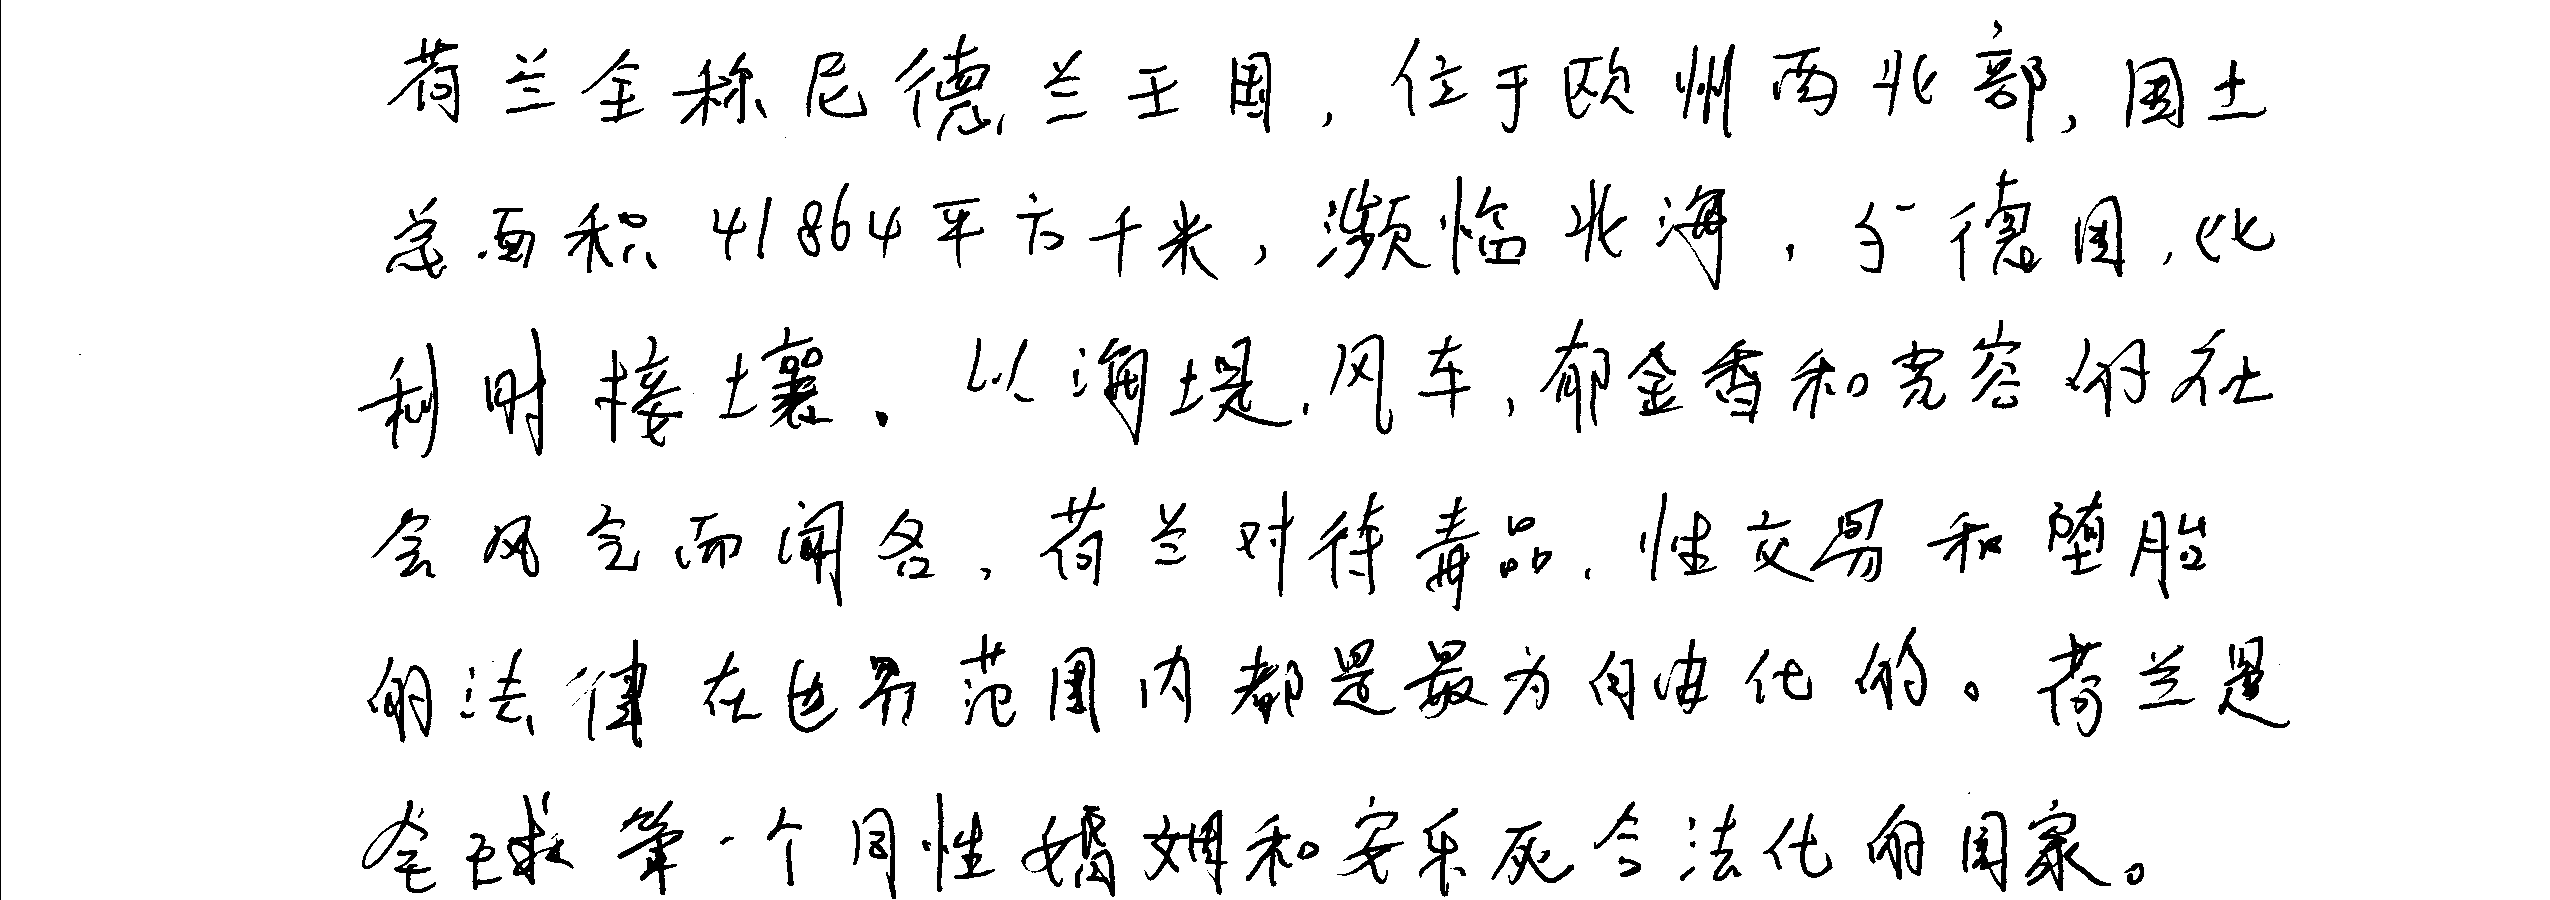 荷兰全称尼德兰王国，位于欧州西北部，国土
总面积41864平方千米，濒临北海，与德国，比
利时接壤。以海堤，风车，郁金香和宽容的社
会风气而闻名，荷兰对待毒品，性交易和堕胎
的法律在世界范围内都是最为自由化的。荷兰是
全球第一个同性婚姻和安乐死合法化的国家。